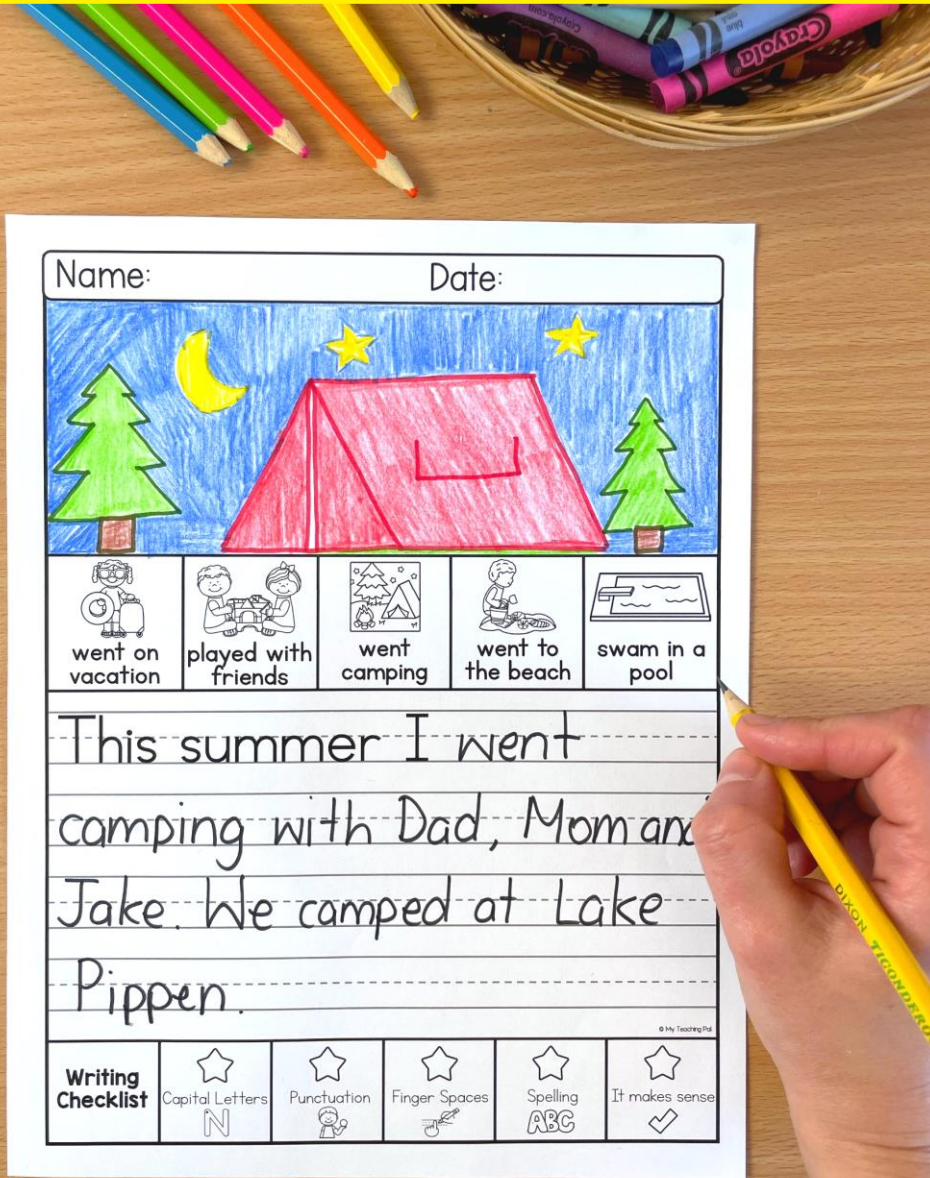 Crayola.com
blue
Crayola
Name: Date:
went on
vacation
played with
friends
went
camping
went to
the beach
swam in a
pool
This summer I went
camping with Dad, Mom and
Jake. We camped at Lake
Pippen.
© My Teaching Pal
Writing
Checklist
Capital Letters
N
Punctuation
Finger Spaces
Spelling
ABC
It makes sense
DIXON TICONDERO